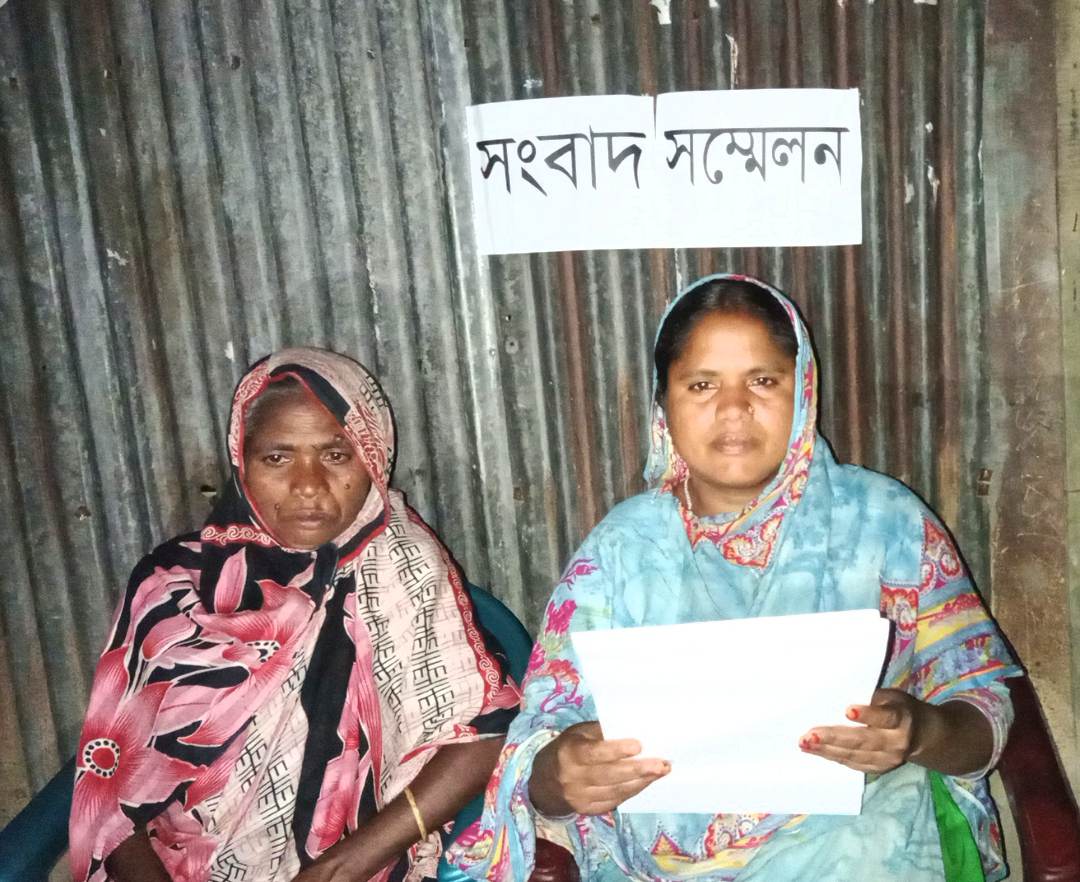 সংবাদ সম্মেলন